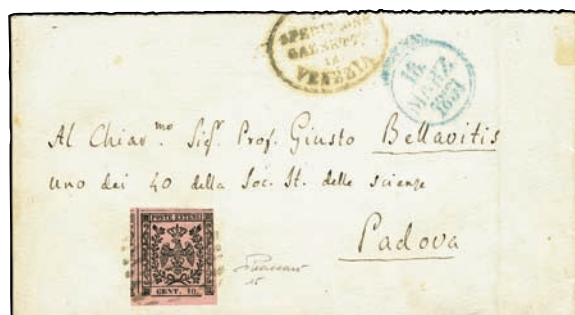 SPEDIZIONE
GAZZETTE
in
VENEZIA
16
MARZ
1853
Al Chiar.mo Sigr. Prof. Giusto Bellavitis
uno dei 40 della Soc. It. delle scienze
Padova
POSTE ESTENSI
CENT. 10.